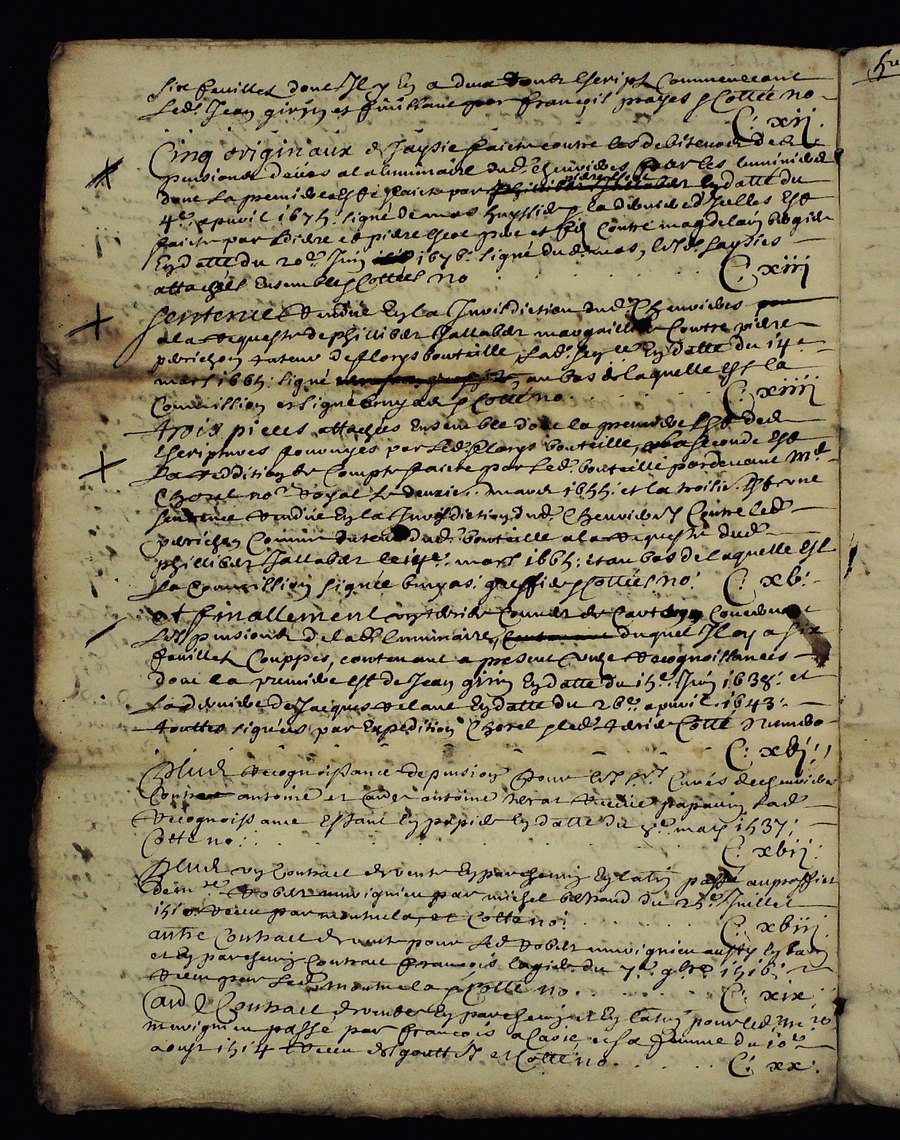 six feuilles dont Il y En a deux dont Escript Commencant
Led. Jean girin et finissant par françois prayes p Cottée no
C. xij.
Cinq originaux de saysie faicte contre les debiteurs de
pensions deues a la luminaire dud. Chevrieres par les luminiers
dont La premiere est faicte par En datte du
4e. apvril 1675 signé demas huyssier p la derniere d'Icelles Est
faicte par pierre et pierre pere et fils Contre magdelain
En datte du 20e Juin 1676. signé dud. mas, lesd. saysies
attachés Ensemble p Cottées no
C. xiij
Sentence Rendue En la Jurisdiction dud. Chevrieres
a la Requeste de phillibert Jallabert marguillier Contre pierre
perichon tuteur de florys bouteille, lad. En datte du 14e
mars 1665: signé au bas de laquelle est la
Commission et signé bruyas p Cotté no.
C. xiiij
trois pieces attachées Ensemble dont la premiere Est des
Escriptures fournyes par led. florys bouteille, la seconde Est
La Reddition de Compte faicte par led. bouteille pardevant Me
Chorel nore Royal Le dernier. 1655. et la troisie. Est une
sentence Rendue En la Jurisdiction dud. Chevrieres Contre led.
perichon Comme tuteur dud. bouteille a la Requeste dud.
phillibert Jallabert le 14e. mars 1665: et au bas de laquelle Est
La Commission signée bruyas. greffier p Cottées no.
C. xv.
et finallement un terrier Couvert de Carton Concernant
Les pensions de lad. luminaire, duquel Il y a six
feuillets Couppés, contenant a present unze Recognoissances
dont la premiere est de Jean girin En datte du 15e. Juin 1638. et
La derniere de Jacques En datte du 26e. apvril. 1643.
touttes signées par Expedition Chorel p led. terrier Cotté Numbo
C. xvj.
Plus Recognoissance de pension pour les Srs Curés de chevrieres
Contre antoine et autre antoine Receue papaurin Lad.
Recognoissance Estant En papier En datte du mars 1537:
Cotte no.
C. xvij.
Plus un Contract de vente En parchemin En latin passé au proffict
de mre Robert muvignieu par michel bertrand du 25e. Juillet
Receu par montucla, et Cotte no.
C. xviij.
autre Contract de vente pour led Robert muvignieu aussy En latin
et En parchemin Contract françois lagier du 7e. 9bre. 1516.
Receu par led. montucla p Cotte no.
C. xix.
autre Contract de vente En parchemin et En latin pour led. mre Ro
muvignieu passé par françois et sa femme du 10e
aoust 1514 Receu desgouttes et Cotté no.
C. xx.